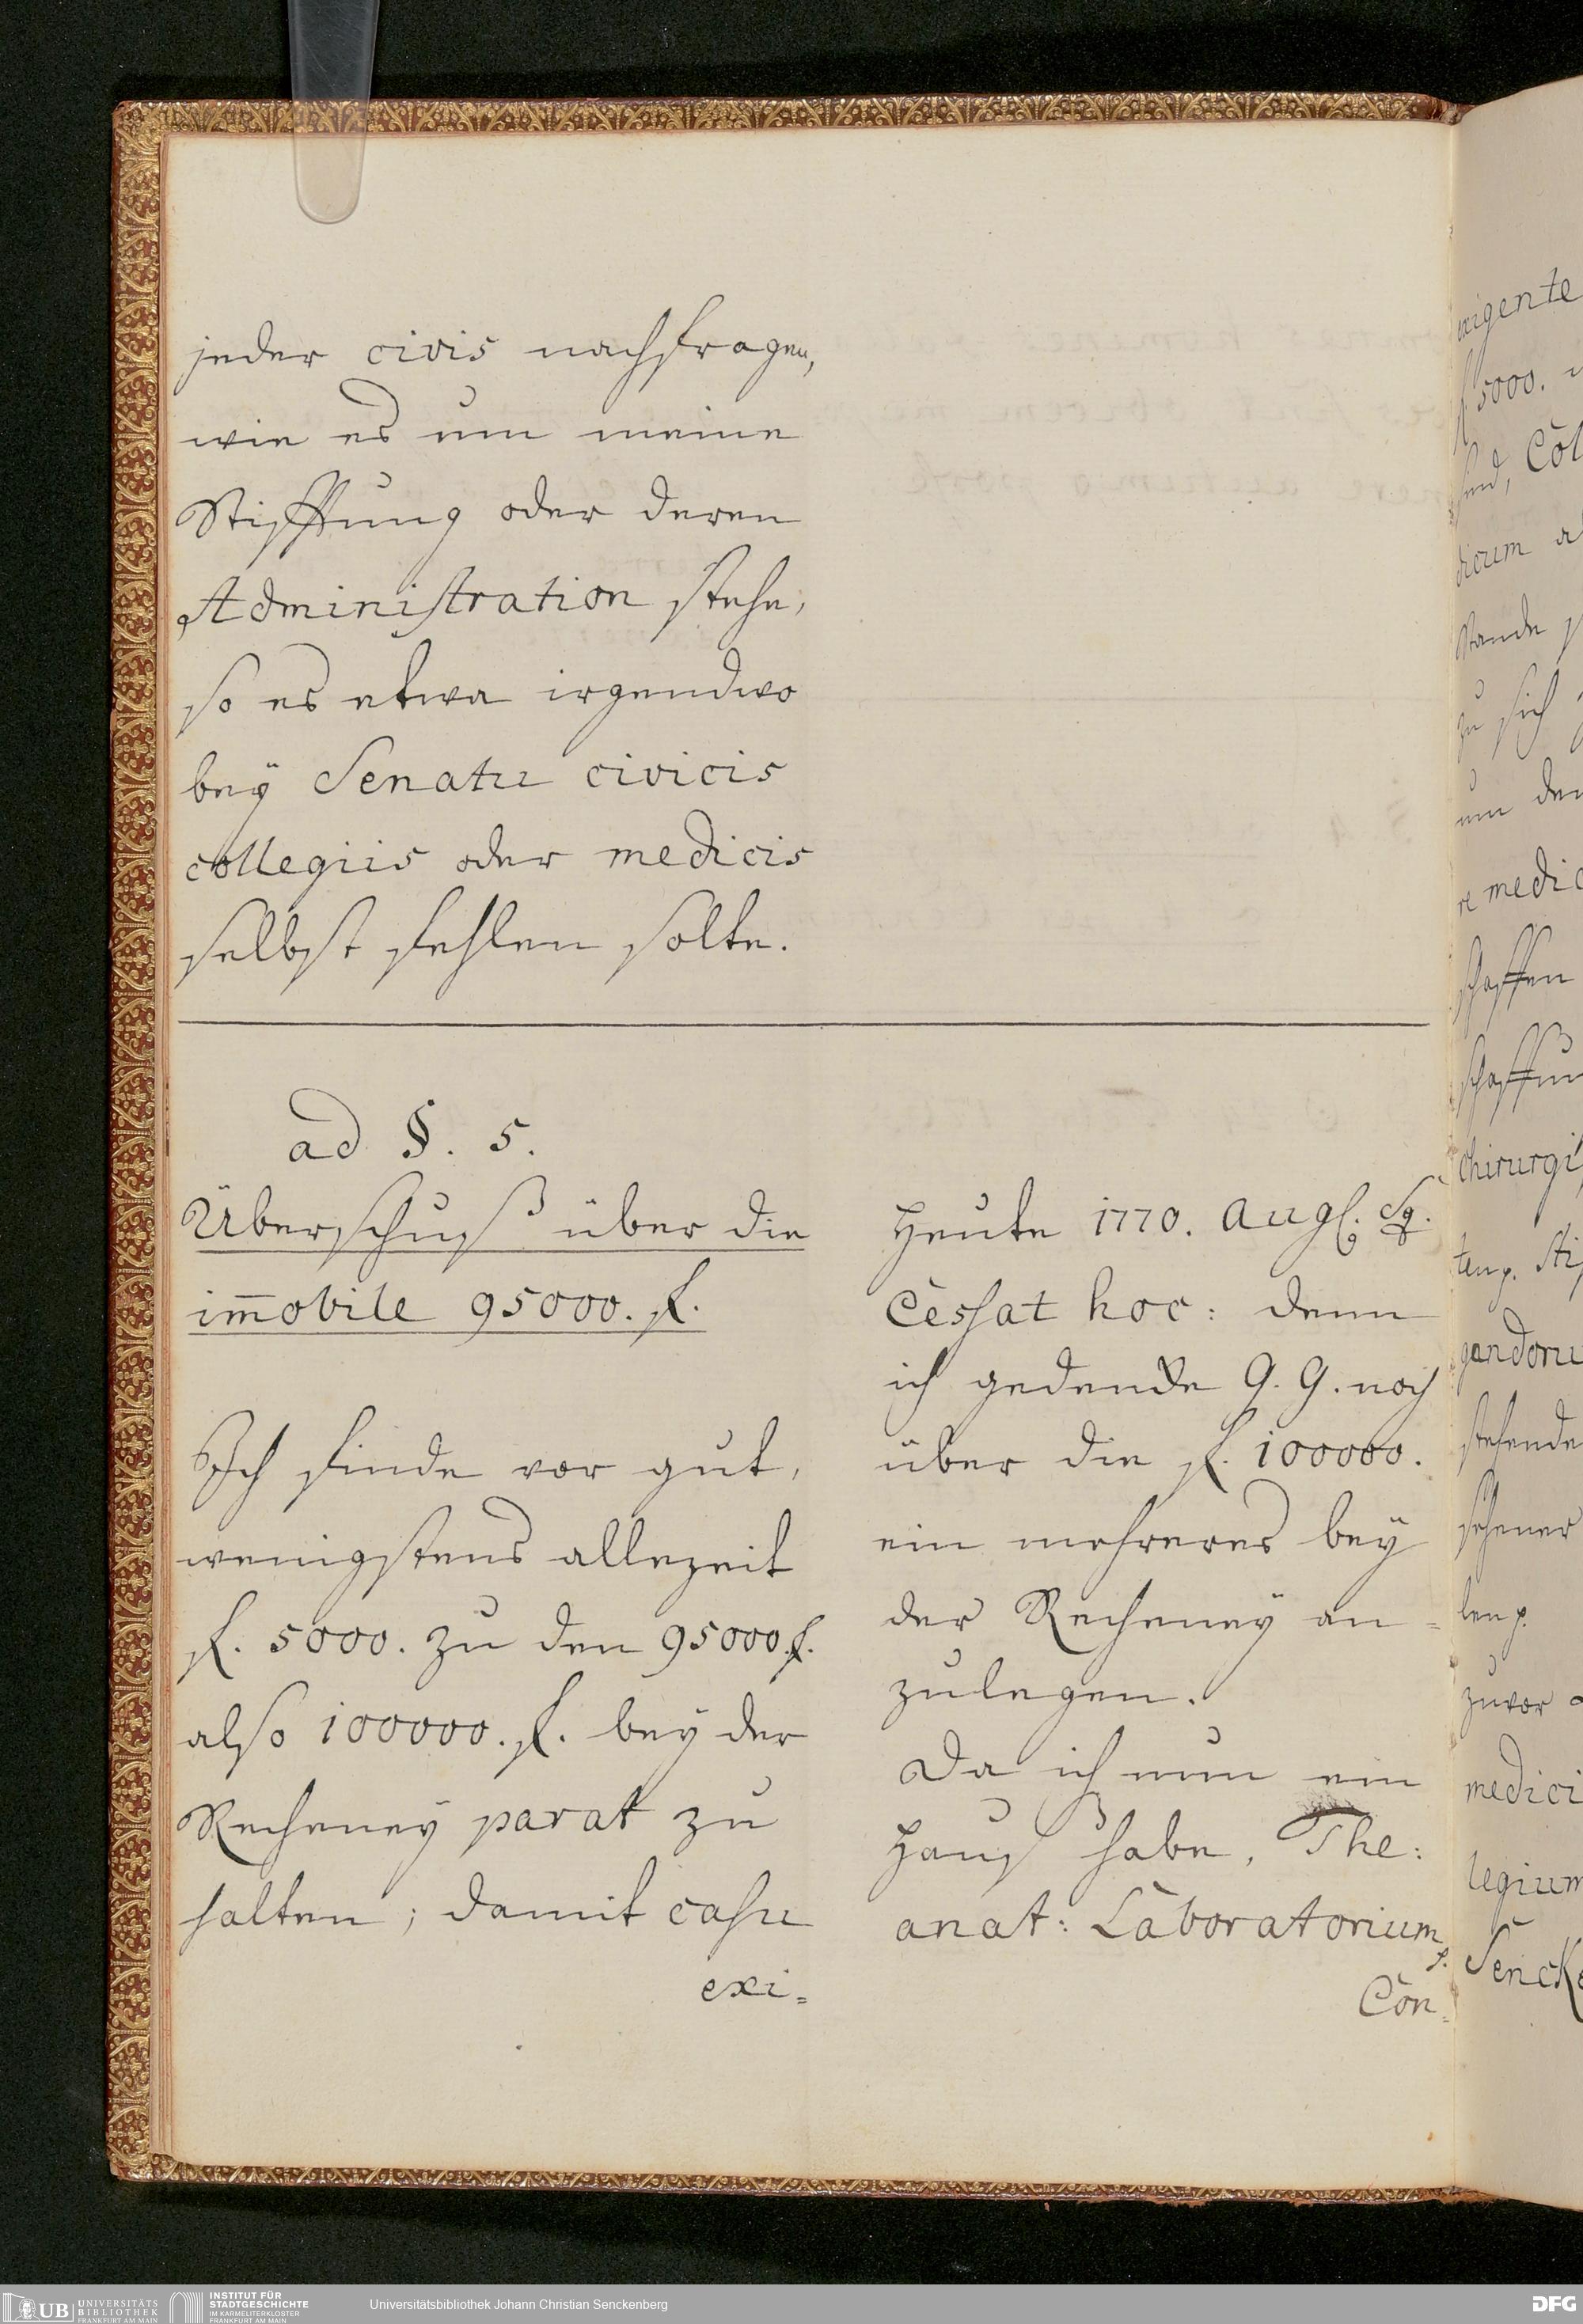 jeder civis nachfragen,
wie es um meine
Stifftung oder deren
Administration stehe,
so es etwa irgendwo
bey Senatu civicis
collegiis oder medicis
selbst fehlen solte.
ad §. 5.
Überschuß über die
im̅obile 95000. f.
Ich finde vor gut,
wenigstens allezeit
f. 5000. zu den 95000 f.
also 100000. f. bey der
Recheney parat zu
halten; damit casu
exi=
Heute 1770. Aug.
Cessat hoc: denn
ich gedencke G. G. noch
über die f. 100000.
ein mehreres bey
der Recheney an=
zulegen.
Da ich nun ein
Hauß habe, The:
anat: Laboratorium
Con=
exigente
f 5000.
Col
dicum
Stande
zu sich
um
re medic
schaffen
schaffun
Chirurgi
gandoru
stehende
sehener
len p.
zuvor
medici
legium
Sencke
UB UNIVERSITÄTS
BIBLIOTHEK
FRANKFURT AM MAIN
INSTITUT FÜR
STADTGESCHICHTE
IM KARMELITERKLOSTER
FRANKFURT AM MAIN
Universitätsbibliothek Johann Christian Senckenberg
DFG